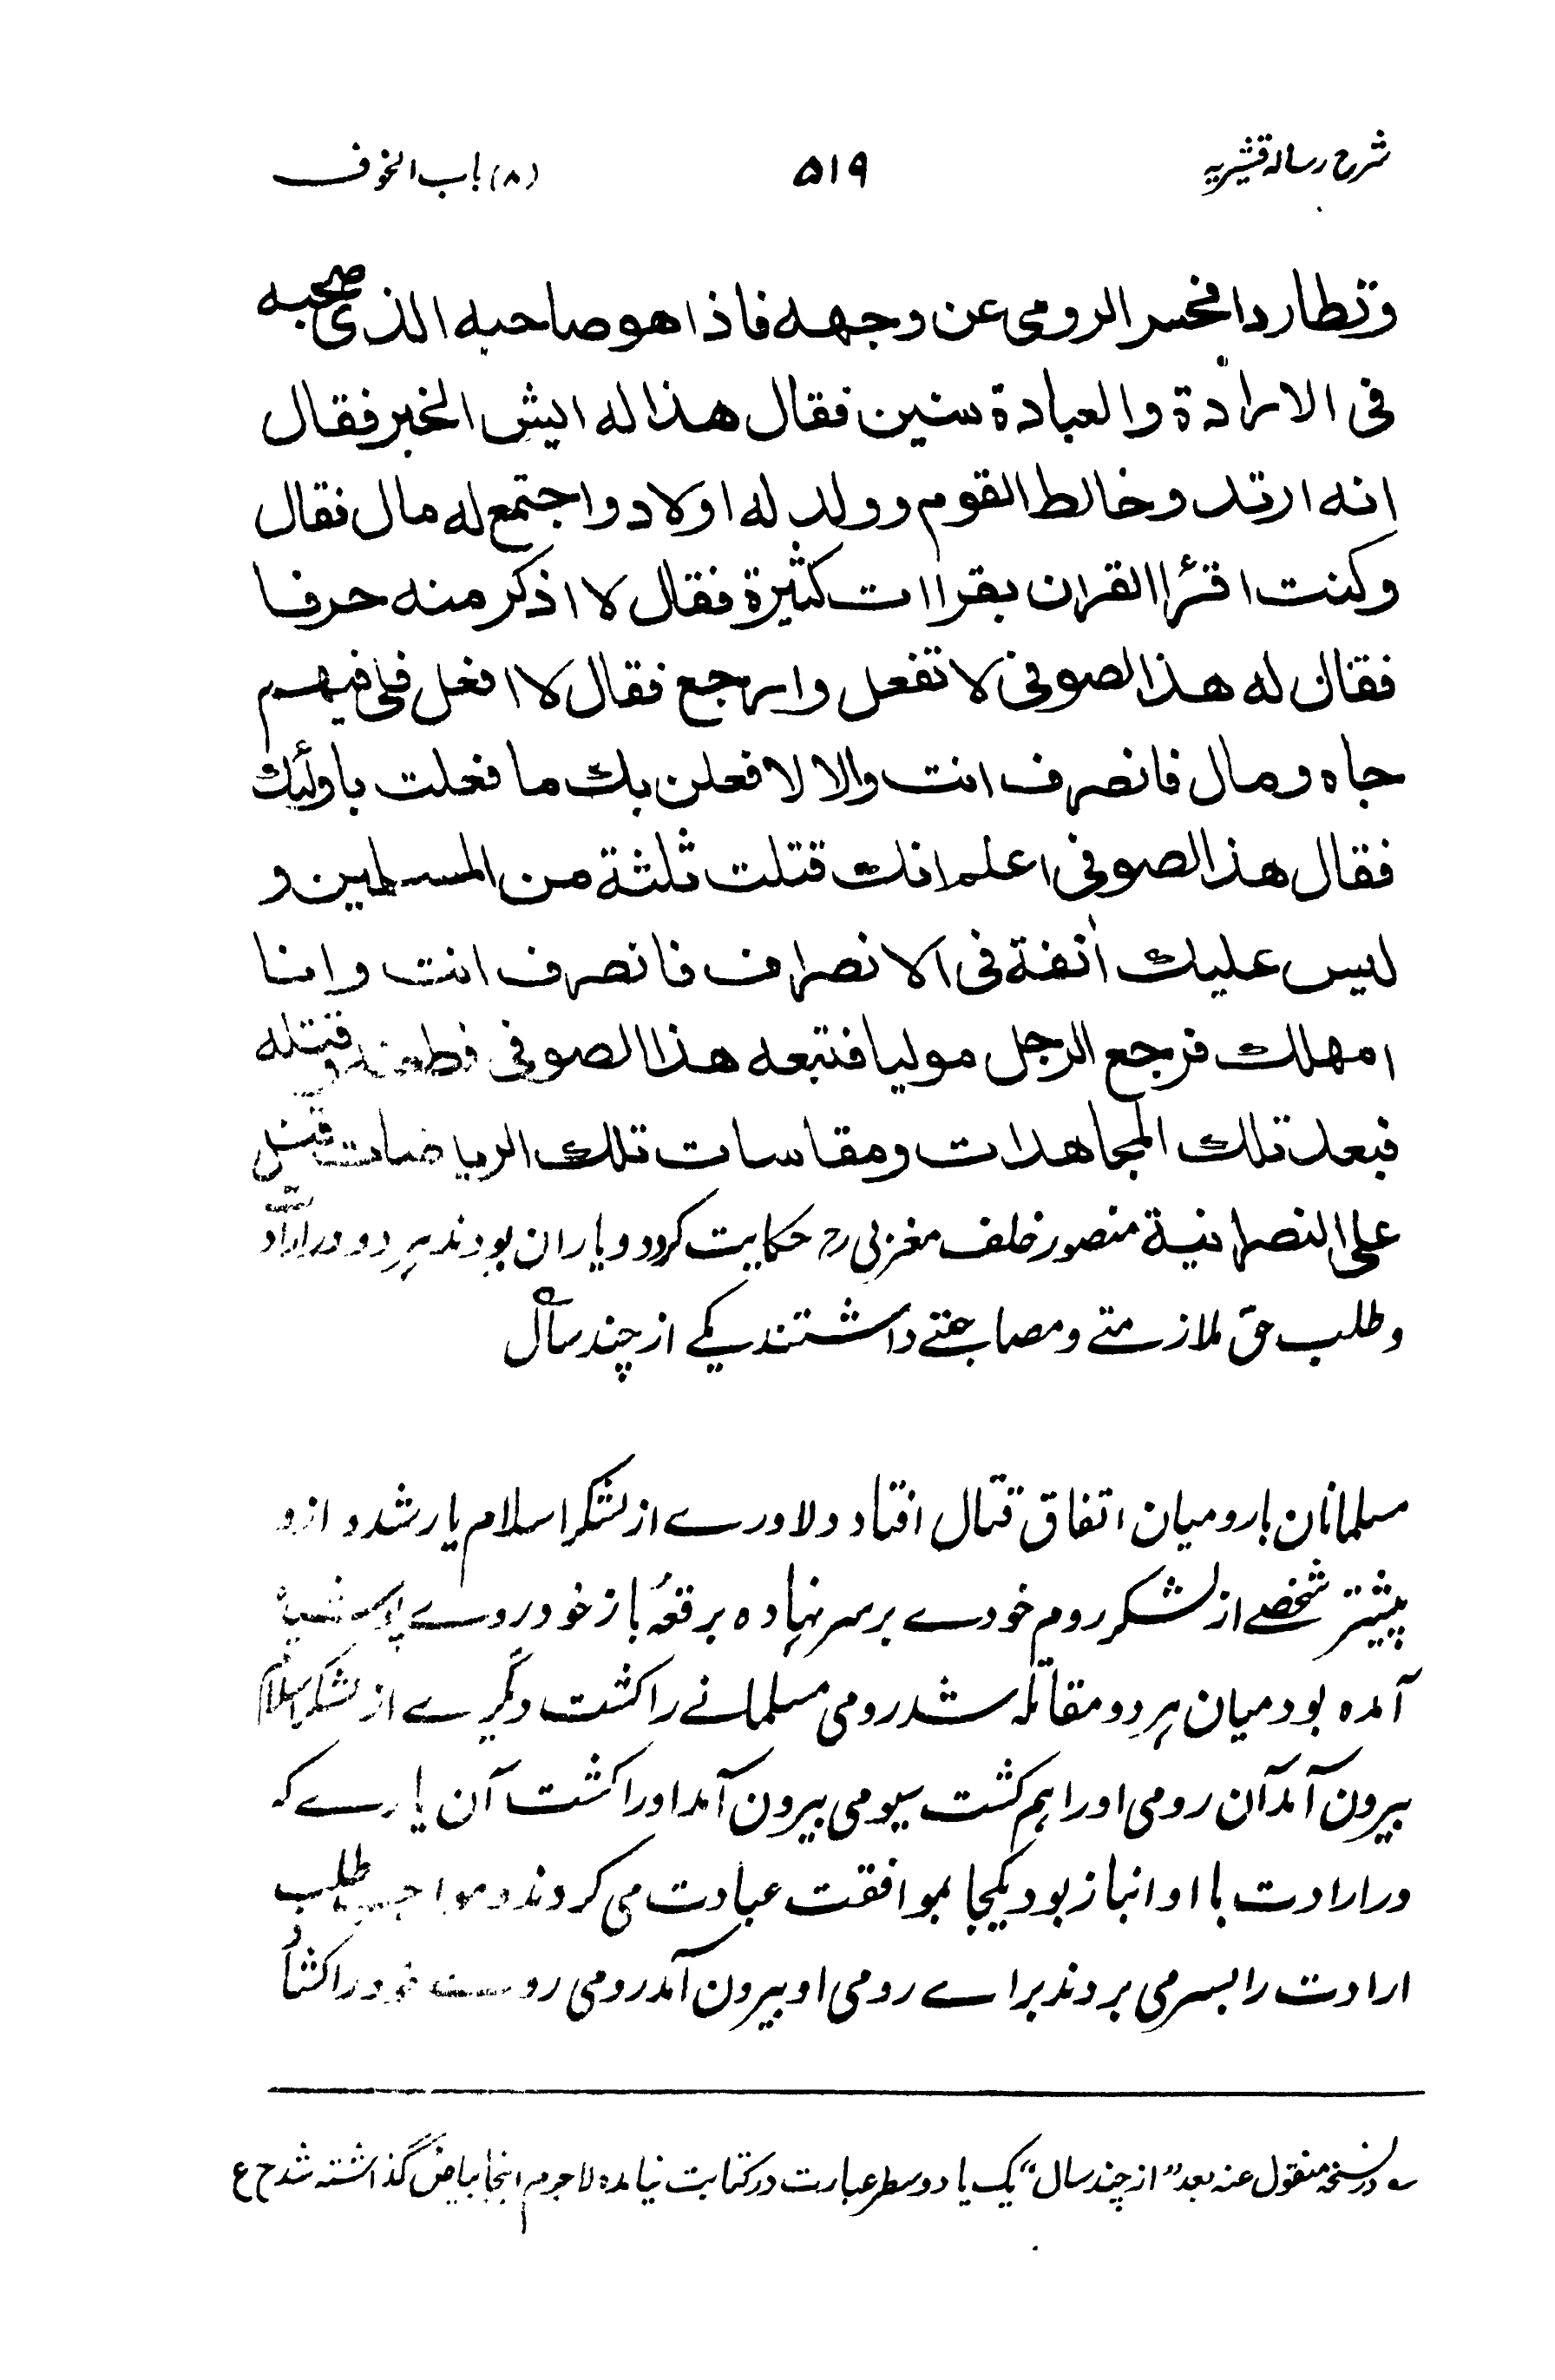 شرح رساله قشیریه
۵۱۹
(۸) باب الخوف
وتطاردا فحسر الرومی عن وجهه فاذا هو صاحبه الذی صحبه
فی الارادة والعبادة سنین فقال هذا له ایش الخبر فقال
انه ارتد وخالط القوم وولد له اولاد واجتمع له مال فقال
وکنت اقرٔا القران بقراات کثیرة فقال لا اذکر منه حرفا
فقال له هذا الصوفی لا تفعل وارجع فقال لا افعل فلی فیهم
جاه ومال فانصرف انت والا لافعلن بک ما فعلت باولٰئک
فقال هذا الصوفی اعلم انک قتلت ثلثة من المسلمین و
لیس علیک أنفة فی الانصراف فانصرف انت وانا
امهلک فرجع الرجل مولیا فتبعه هذا الصوفی فطعنه وقتله
فبعد تلک المجاهدات ومقاسات تلک الریاضات قتل
علی النصرانیة منصور خلف مغربی رح حکایت کرد دو یاران بودند هر دو در ارادت
و طلب حق ملازمتے و مصاحبتے داشتند یکے از چند سال
مسلمانان با رومیان اتفاق قتال افتاد دلاورے از لشکر اسلام یار شد و ازو
پیشتر شخصے از لشکر روم خودے بر سر نهاده برقعهٔ باز خود در روے پوشیده
آمده بود میان هر دو مقاتله شد رومی مسلمانے را کشت دیگرے از لشکر اسلام
بیرون آمد آن رومی او را هم کشت سیومی بیرون آمد او را کشت آن یارے که
در ارادت با او انباز بود یکجا بموافقت عبادت می کردند و مواجب طلب
ارادت را بسر می بردند براے رومی او بیرون آمد رومی روے خود را کشاد
؎ در نسخه منقول عنه بعد "از چند سال" یک یا دو سطر عبارت در کتابت نیامده لاجرم اینجا بیاض گذاشته شد ح ع